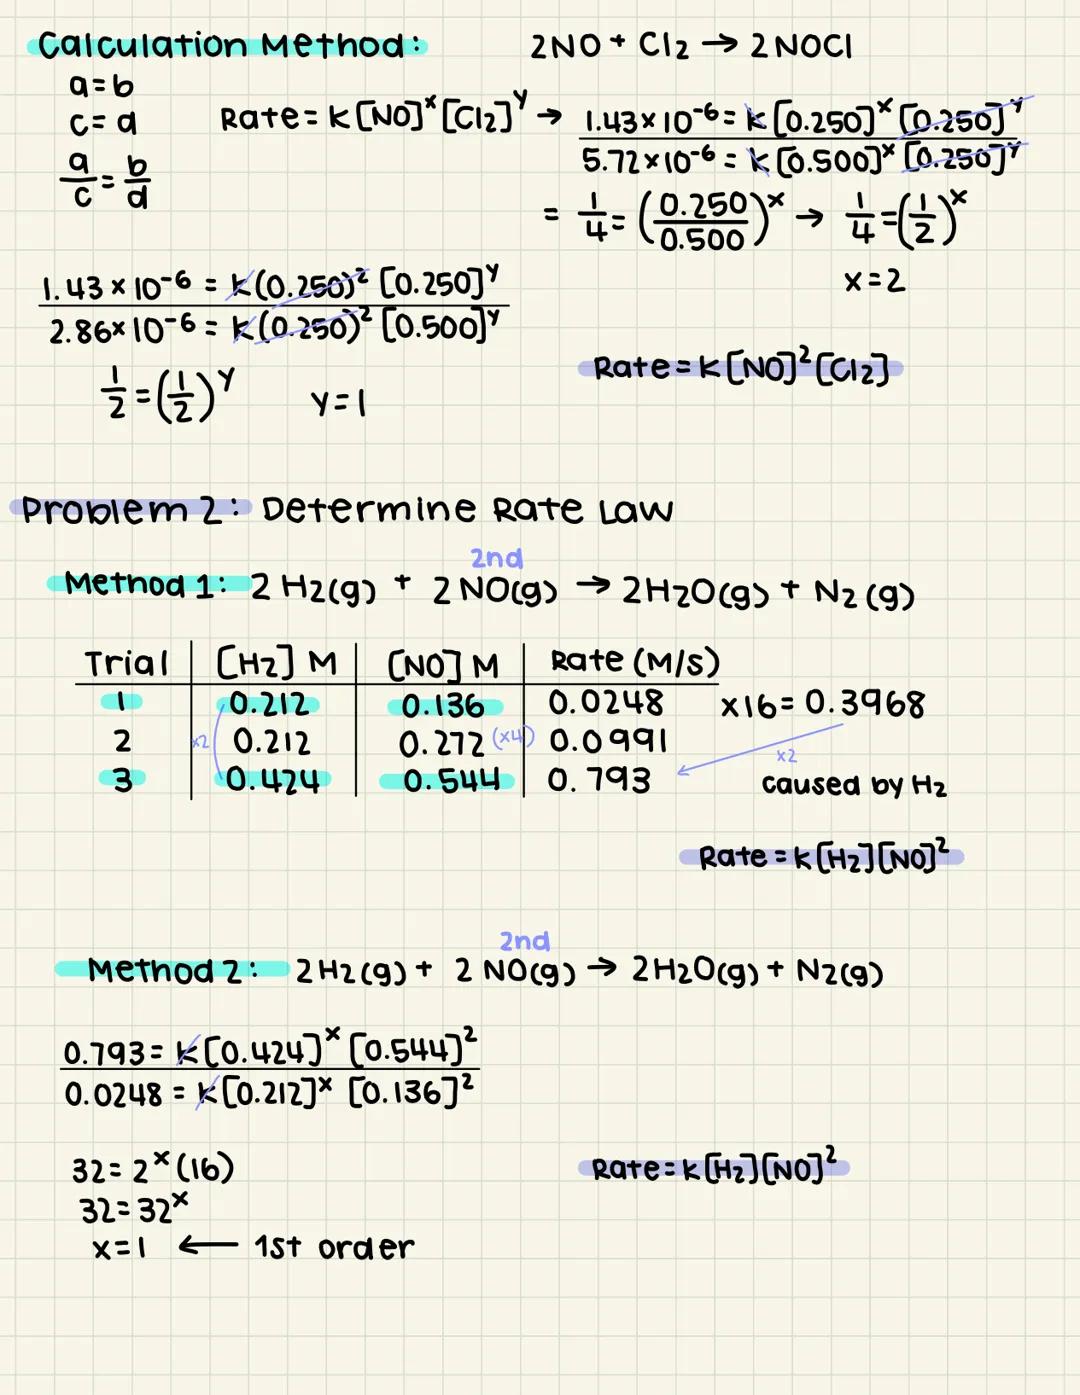 Calculation Method:
2NO + Cl2 → 2NOCl
a=b
c=d
a/c = b/d
Rate = K[NO]^x [Cl2]^y →
1.43×10^-6 = K[0.250]^x [0.250]^y
5.72×10^-6 = K[0.500]^x [0.250]^y
= 1/4 = (0.250/0.500)^x → 1/4 = (1/2)^x
x=2
1.43×10^-6 = K(0.250)^2 [0.250]^y
2.86×10^-6 = K(0.250)^2 [0.500]^y
1/2 = (1/2)^y y=1
Rate = K[NO]^2 [Cl2]
Problem 2: Determine Rate Law
2nd
Method 1: 2 H2(g) + 2 NO(g) → 2H2O(g) + N2(g)
Trial [H2] M [NO] M Rate (M/s)
1 0.212 0.136 0.0248 x16 = 0.3968
2 x2 0.212 0.272 (x4) 0.0991 x2
3 0.424 0.544 0.793 caused by H2
Rate = K[H2][NO]^2
2nd
Method 2: 2H2(g) + 2 NO(g) → 2H2O(g) + N2(g)
0.793 = K[0.424]^x [0.544]^2
0.0248 = K[0.212]^x [0.136]^2
32 = 2^x (16)
Rate = K[H2][NO]^2
32 = 32^x
x=1 ← 1st order